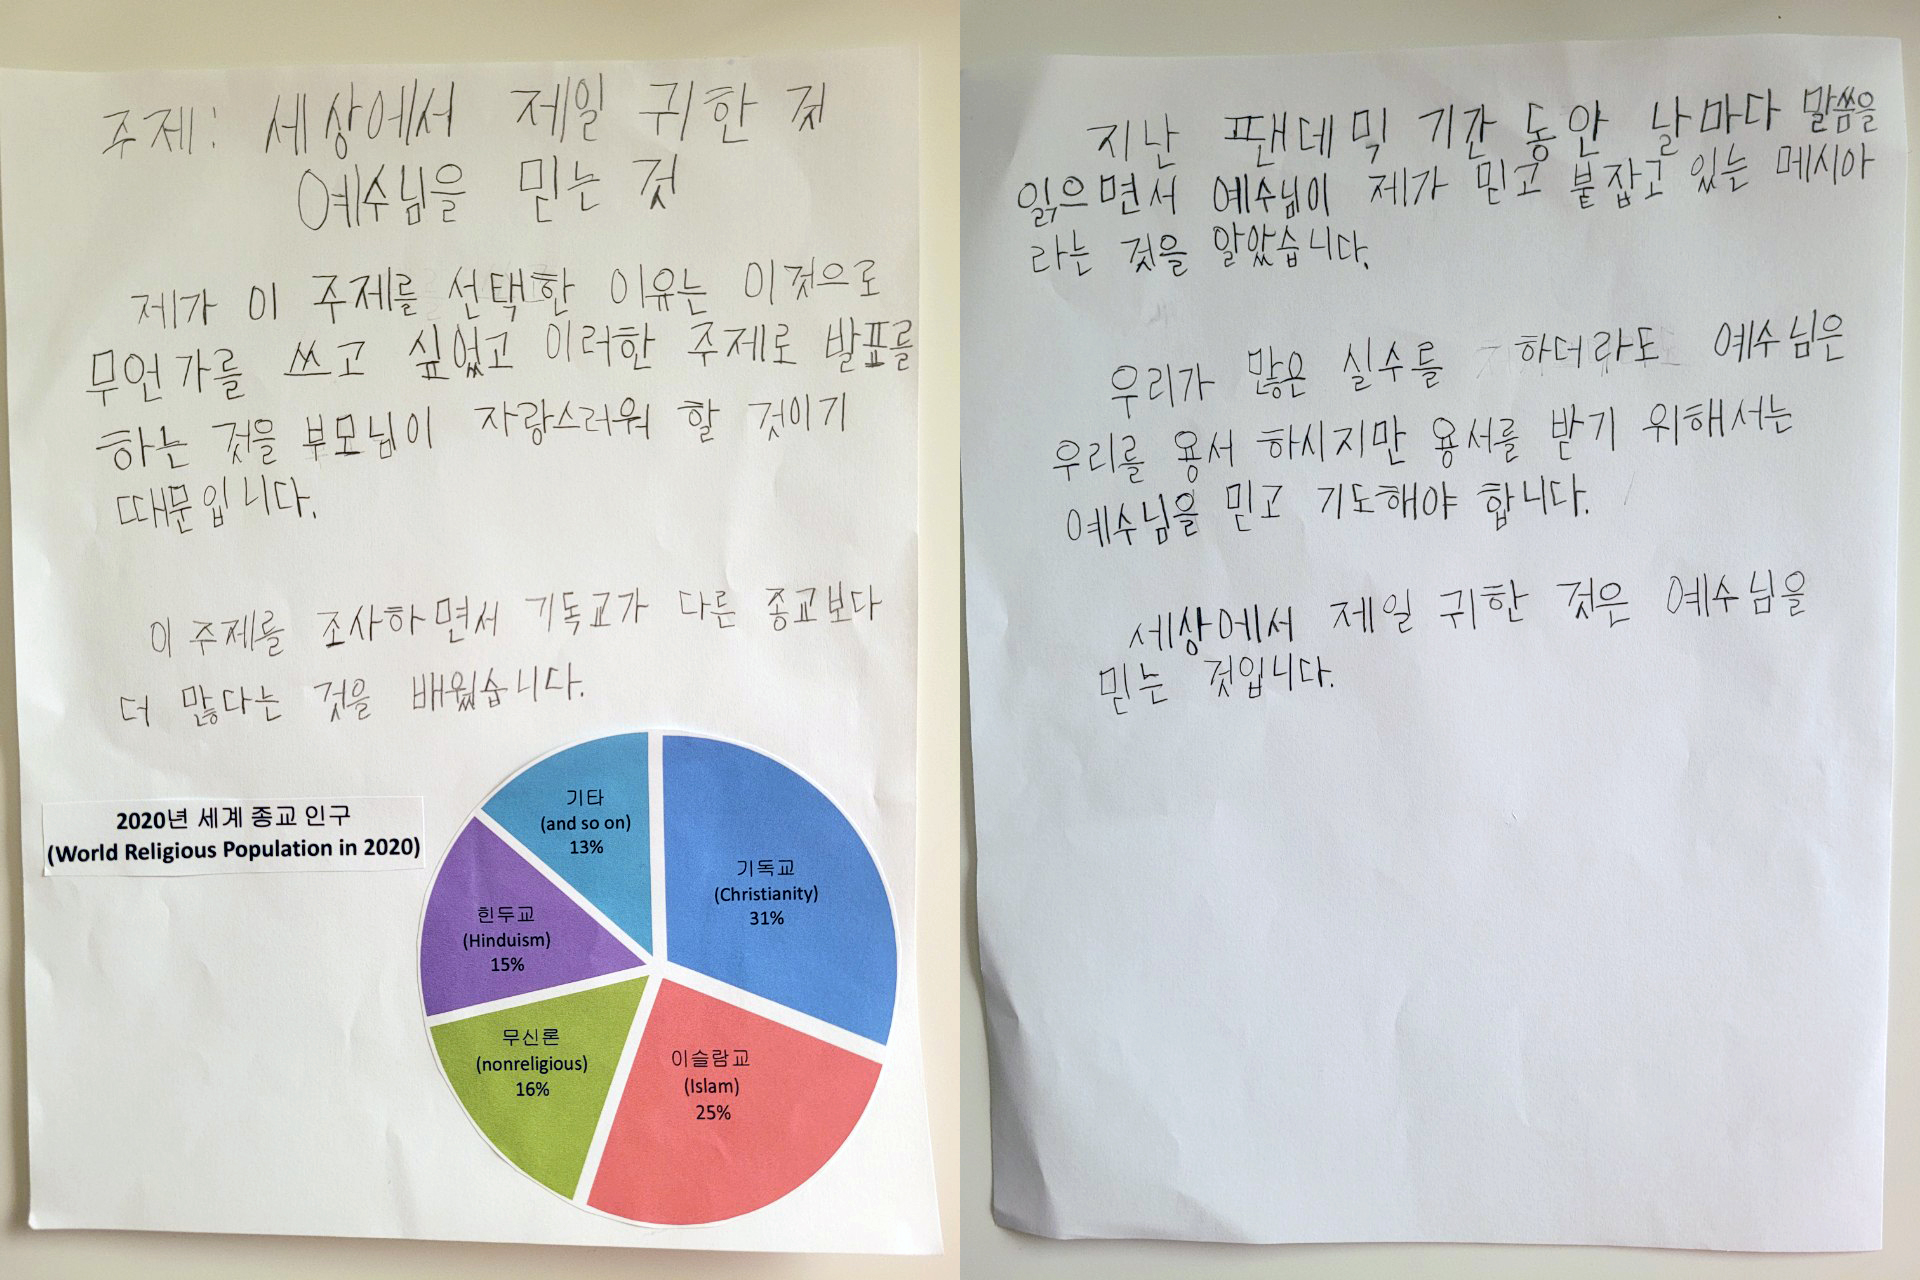 주제: 세상에서 제일 귀한 것
예수님을 믿는 것
제가 이 주제를 선택한 이유는 이것으로
무언가를 쓰고 싶었고 이러한 주제로 발표를
하는 것을 부모님이 자랑스러워 할 것이기
때문입니다.
이 주제를 조사하면서 기독교가 다른 종교보다
더 많다는 것을 배웠습니다.
2020년 세계 종교 인구
(World Religious Population in 2020)
기타
(and so on)
13%
기독교
(Christianity)
31%
힌두교
(Hinduism)
15%
무신론
(nonreligious)
16%
이슬람교
(Islam)
25%
지난 팬데믹 기간 동안 날마다 말씀을
읽으면서 예수님이 제가 믿고 붙잡고 있는 메시아
라는 것을 알았습니다.
우리가 많은 실수를 하더라도 예수님은
우리를 용서 하시지만 용서를 받기 위해서는
예수님을 믿고 기도해야 합니다.
세상에서 제일 귀한 것은 예수님을
믿는 것입니다.